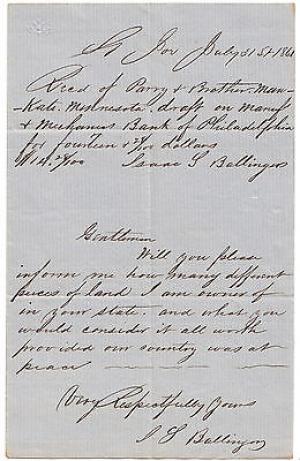 July 31st 1861
Recd of Parry & Brother. Man-
-kato. Minnesota. draft on Manuf
& Mechanics Bank of Philadelphia
for fourteen & /100 dollars
$14. /100 Isaac S Ballinger
Gentlemen
Will you please
inform me how many different
pieces of land I am owner of
in your state. and what you
would consider it all worth
provided our country was at
peace
Very Respectfully Yours
I S Ballinger